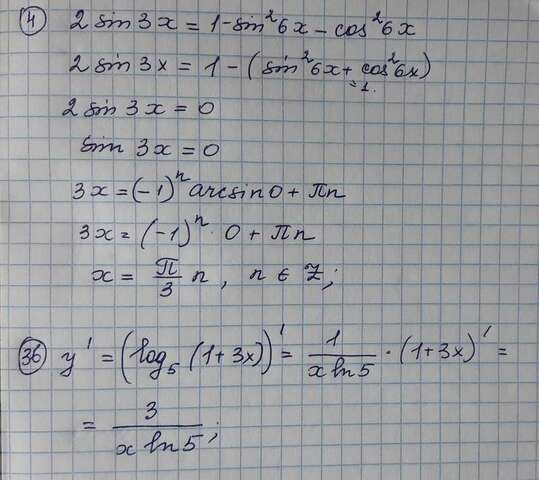 ④ 2 sin 3x = 1 - sin²6x - cos²6x
2 sin 3x = 1 - (sin²6x + cos²6x)
= 1.
2 sin 3x = 0
sin 3x = 0
3x = (-1)ⁿ arcsin 0 + πn
3x = (-1)ⁿ · 0 + πn
x = π/3 n, n ∈ Z;
㊱ y' = (log₅ (1+3x))' = 1/(x ln 5) · (1+3x)' =
= 3/(x ln 5);